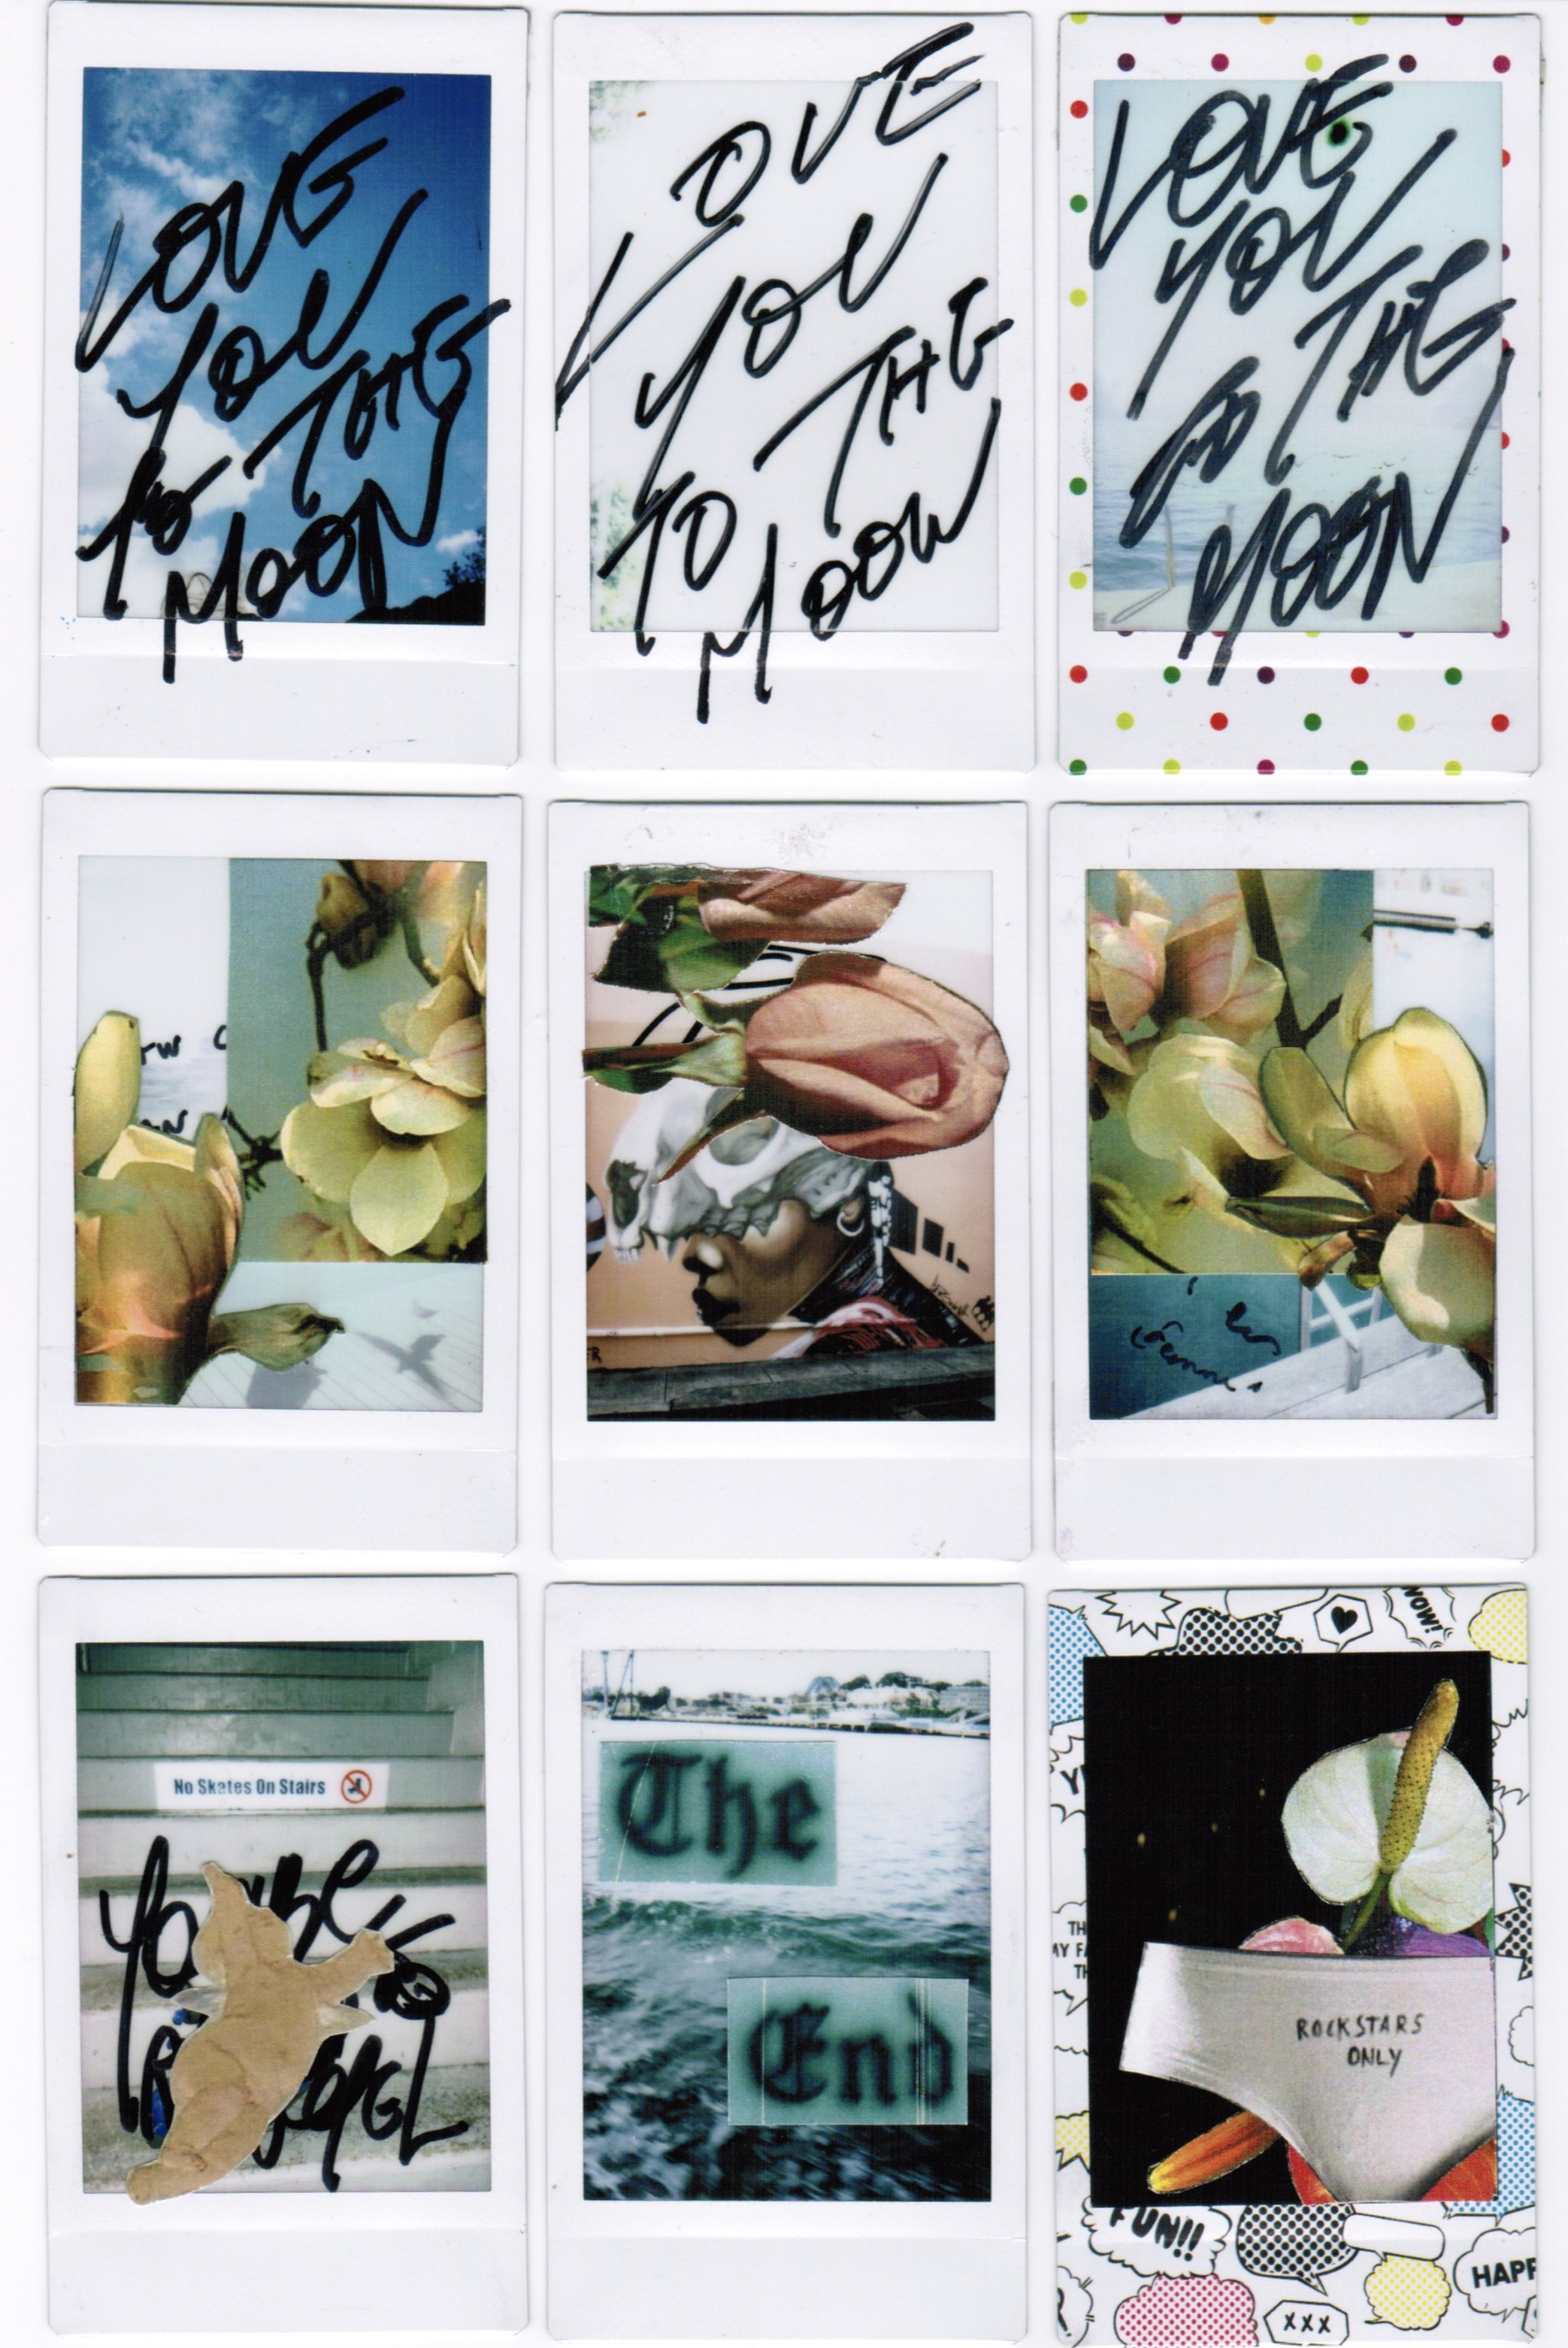 LOVE
YOU
TO THE
MOON
LOVE
YOU
TO THE
MOON
LOVE
YOU
TO THE
MOON
No Skates On Stairs
The
End
WOW!
ROCKSTARS
ONLY
FUN!!
HAPP
XXX